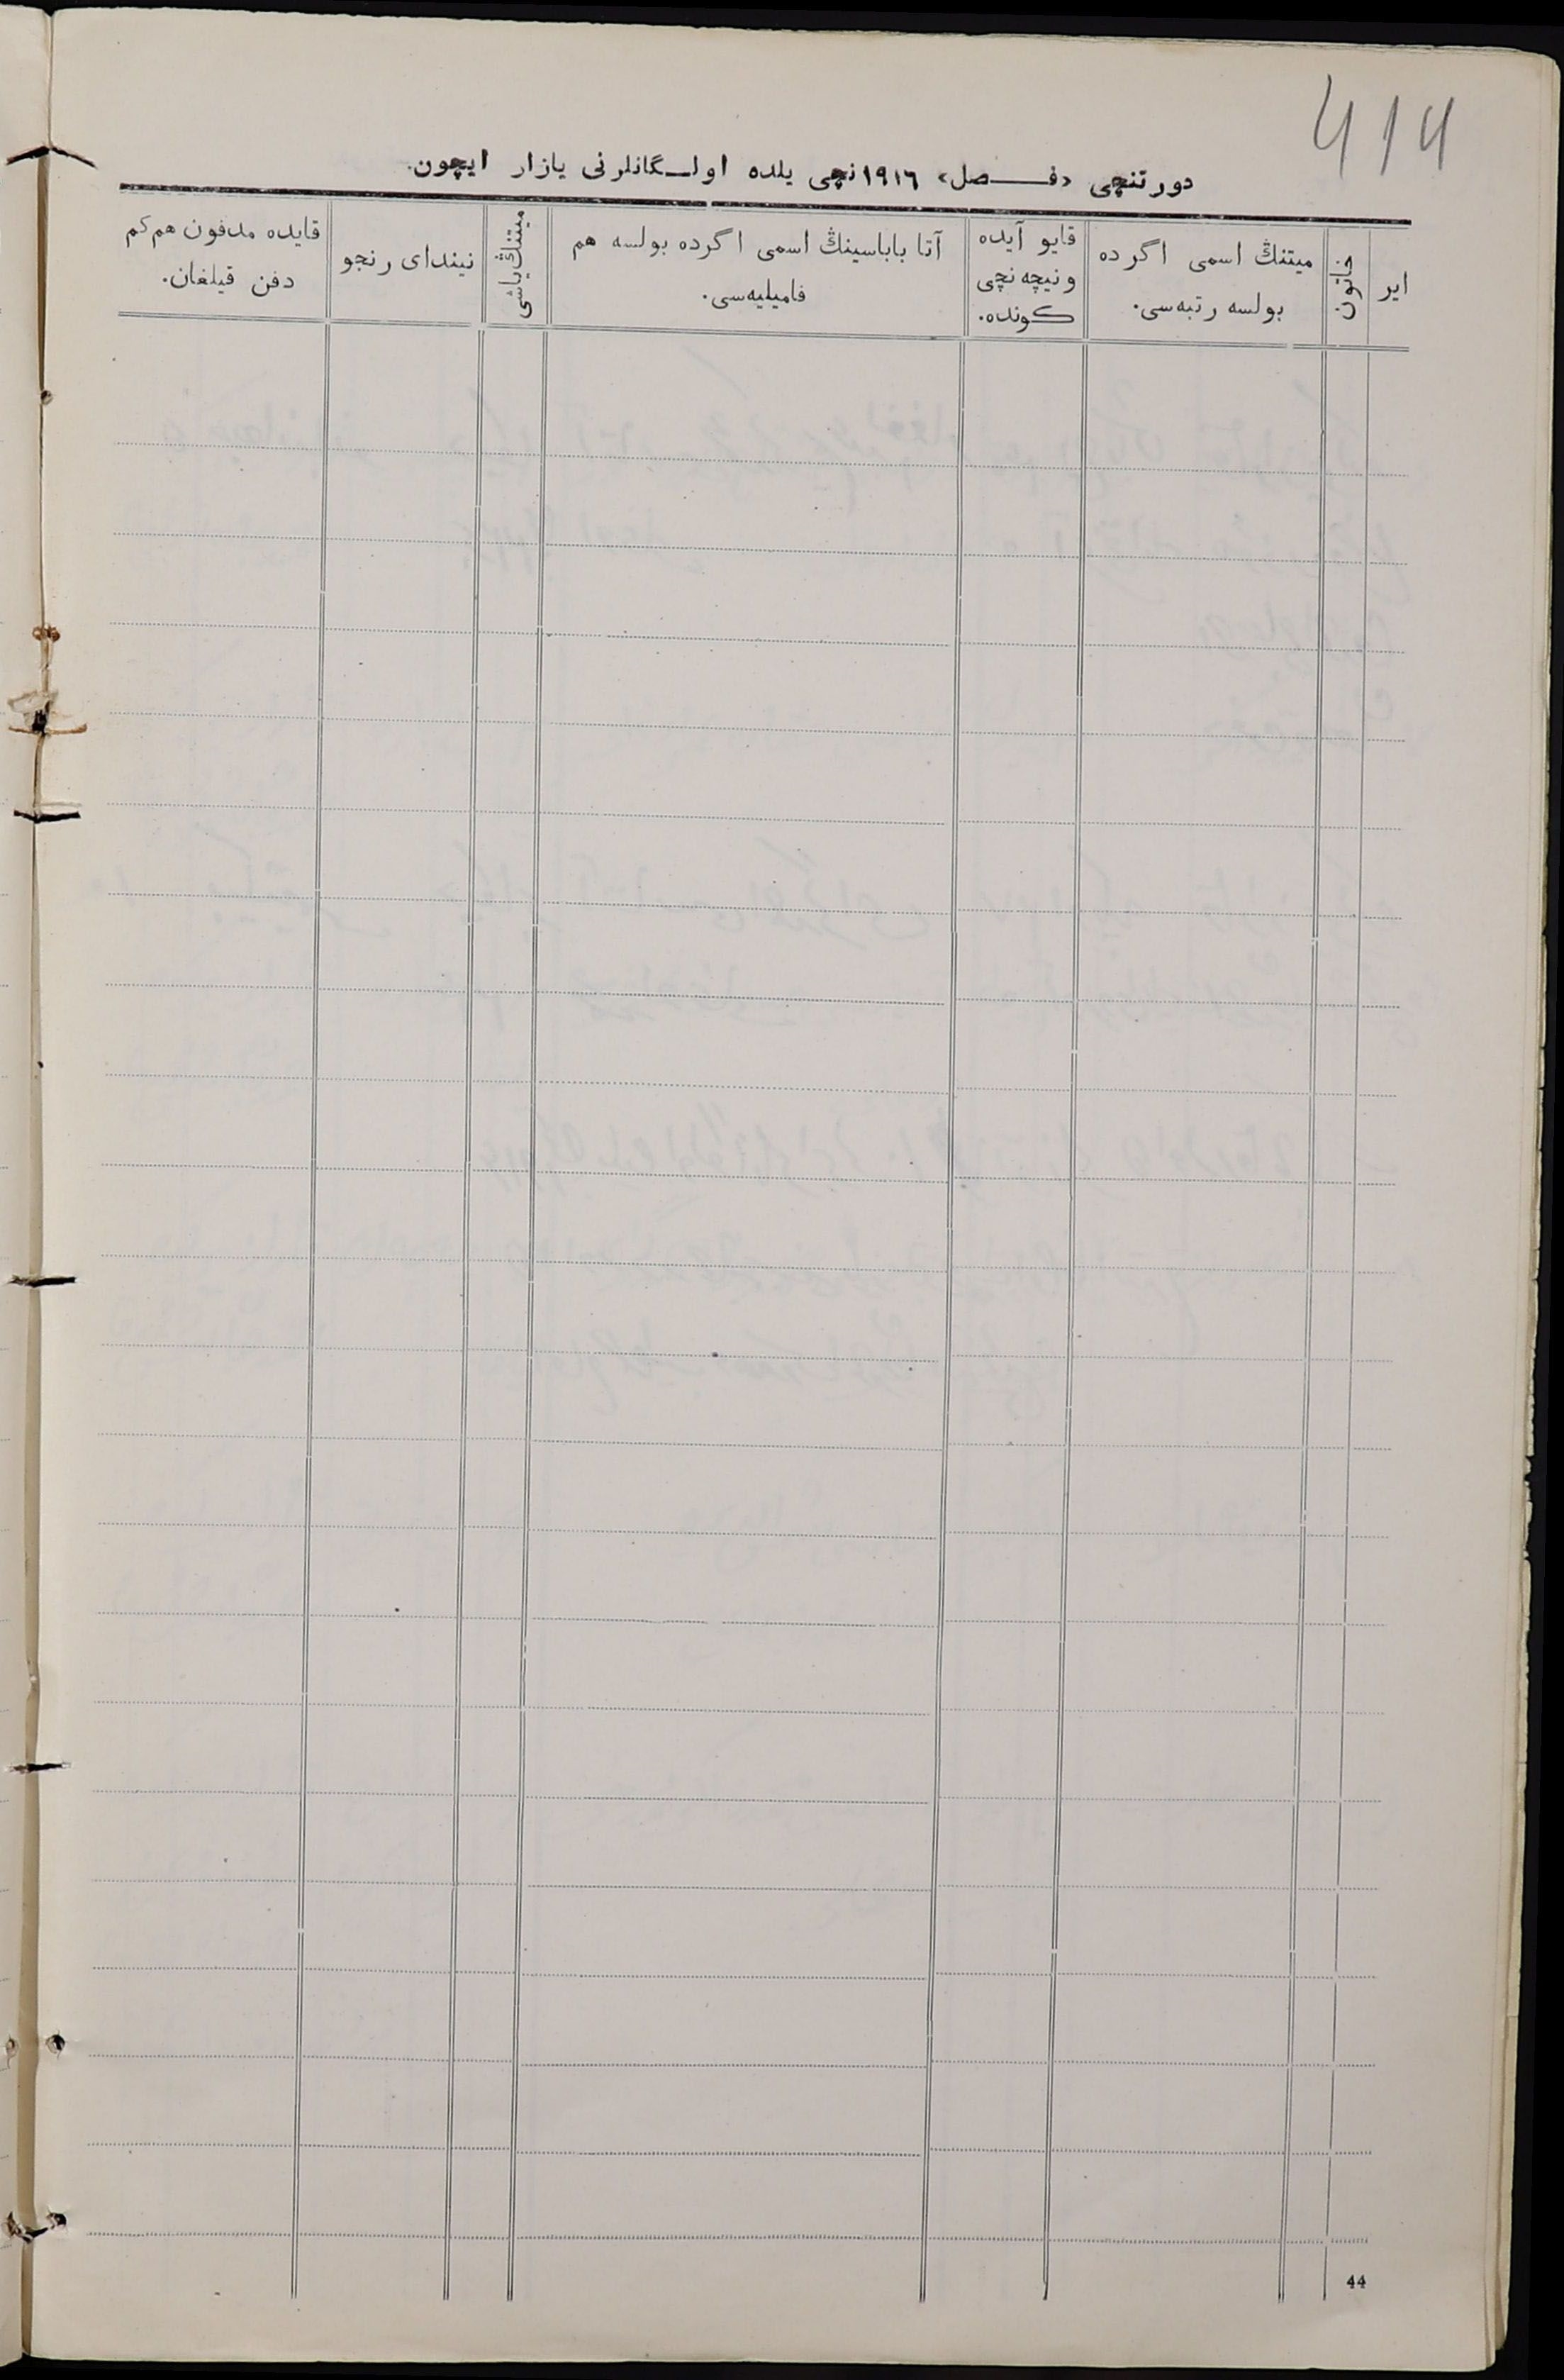 414
دورتنچی «فصل» ١٩١٦ نچی یلده اولگانلرنی یازار ایچون.
ایر
خاتون
میتنڭ اسمی اگرده
بولسه رتبه‌سی.
قایو آیده
و نیچه نچی
کونده.
آتا باباسینڭ اسمی اگرده بولسه هم
فامیلیه‌سی.
میتنڭ یاشی
نیندای رنجو
قایده مدفون هم کم
دفن قیلغان.
44